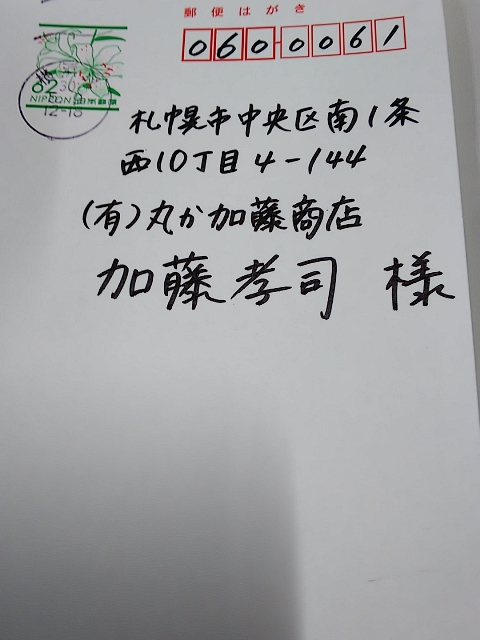 郵便はがき
060-0061
62
NIPPON 日本郵便
12-18
札幌市中央区南1条
西10丁目4-144
(有)丸か加藤商店
加藤孝司 様